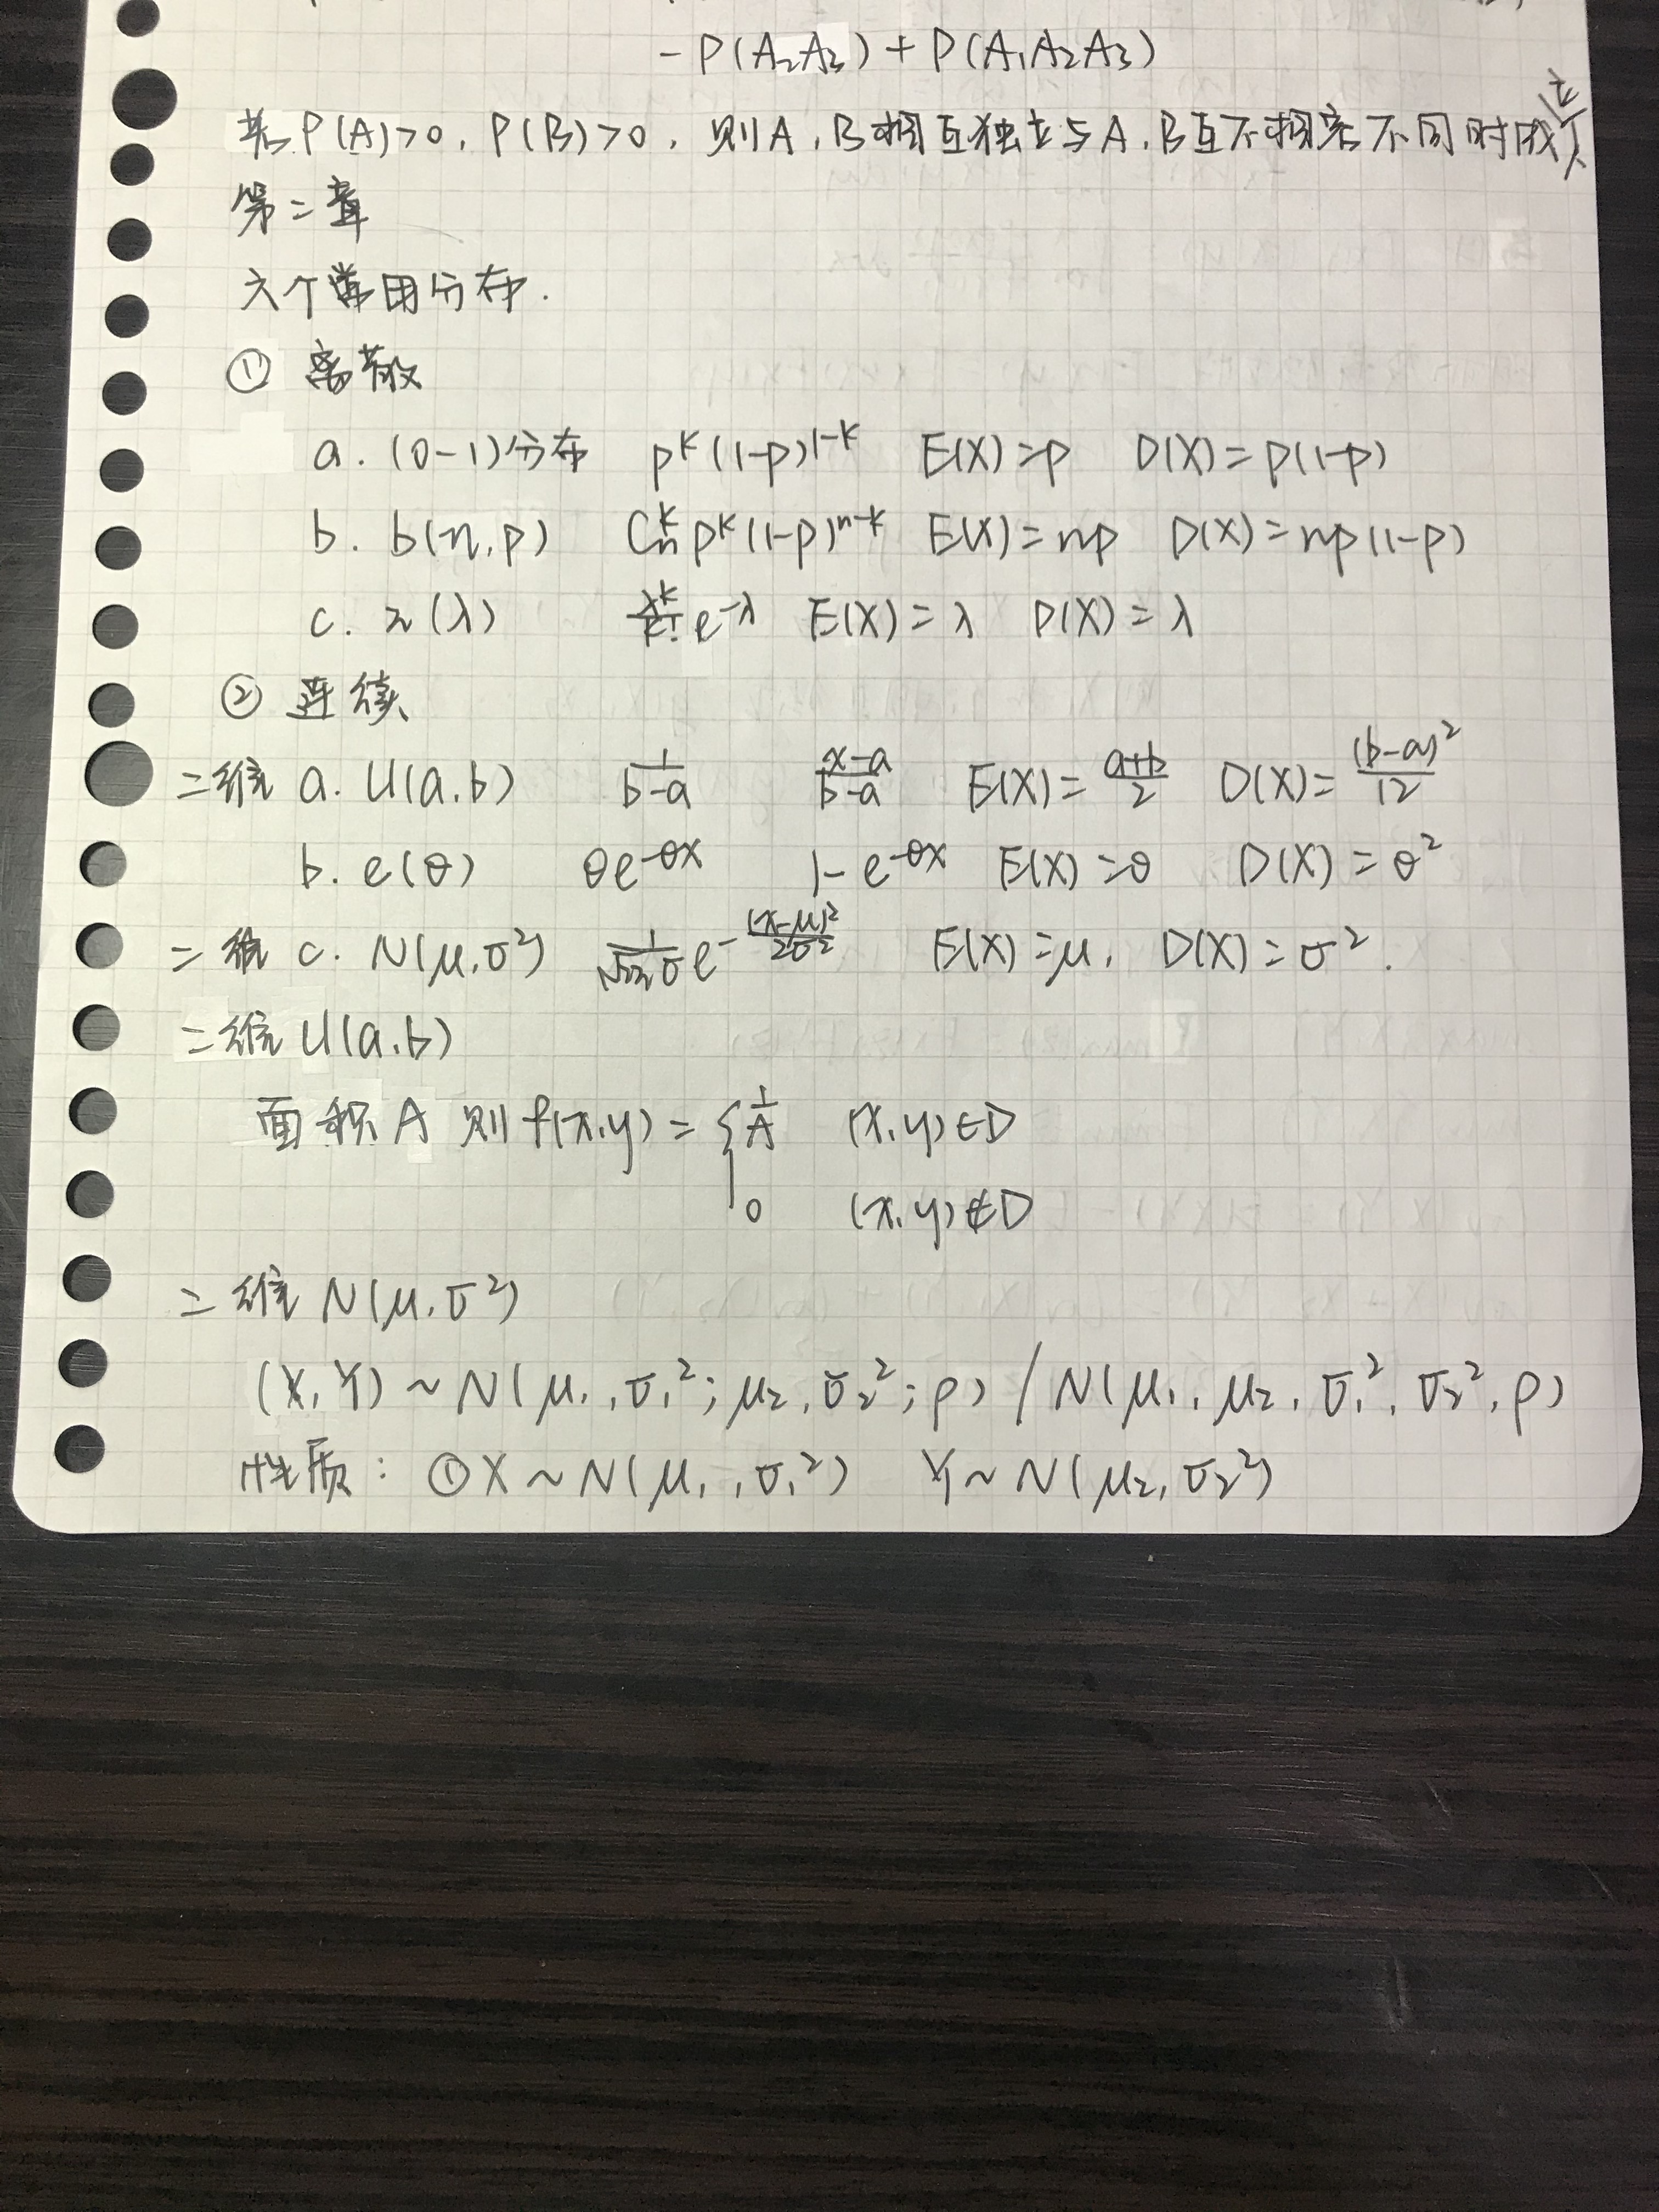 - P(A₂A₃) + P(A₁A₂A₃)
若P(A)>0, P(B)>0, 则A,B相互独立与A,B互不相容不同时成立
第二章
六个常用分布.
① 离散
a. (0-1)分布 p^k(1-p)^{1-k} E(X)=p D(X)=p(1-p)
b. b(n,p) C_n^k p^k(1-p)^{n-k} E(X)=np D(X)=np(1-p)
c. π(λ) λ^k/k! e^{-λ} E(X)=λ D(X)=λ
② 连续
二维 a. U(a,b) 1/(b-a) (x-a)/(b-a) E(X)=(a+b)/2 D(X)=(b-a)²/12
b. e(θ) θe^{-θx} 1-e^{-θx} E(X)=θ D(X)=θ²
二维 c. N(μ,σ²) 1/(√2π σ) e^{-(x-μ)²/2σ²} E(X)=μ, D(X)=σ².
二维 U(a,b)
面积A 则 f(x,y) = { 1/A (x,y)∈D
0 (x,y)∉D
二维 N(μ,σ²)
(X,Y) ~ N(μ₁,σ₁²; μ₂,σ₂²; ρ) / N(μ₁, μ₂, σ₁², σ₂², ρ)
性质: ①X~N(μ₁,σ₁²) Y~N(μ₂,σ₂²)